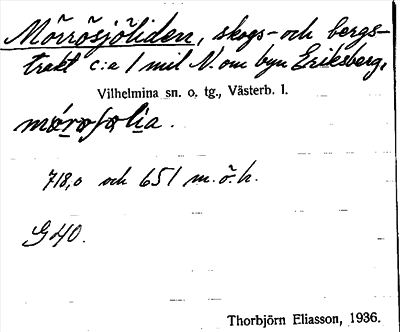 Mörrösjöliden, skogs- och bergs-
trakt c:a 1 mil N. om byn Eriksberg,
Vilhelmina sn. o. tg., Västerb. l.
718,0 och 651 m. ö. h.
G 40.
Thorbjörn Eliasson, 1936.